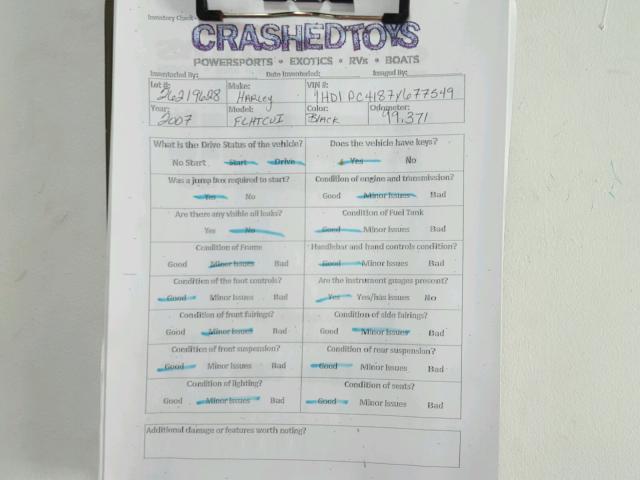 Inventory Check
CRASHEDTOYS
POWERSPORTS • EXOTICS • RVs • BOATS
Inventoried By: Date Inventoried: Issued By:
Lot #: Make: VIN #:
26219628 HARLEY 1HD1PC4187Y677549
Year: Model: Color: Odometer:
2007 FLHTCUI BLACK 99,371
What is the Drive Status of the vehicle? Does the vehicle have keys?
No Start Start Drive Yes No
Was a jump box required to start? Condition of engine and transmission?
Yes No Good Minor Issues Bad
Are there any visible oil leaks? Condition of Fuel Tank
Yes No Good Minor Issues Bad
Condition of Frame Handlebar and hand controls condition?
Good Minor Issues Bad Good Minor Issues Bad
Condition of the foot controls? Are the instrument guages present?
Good Minor Issues Bad Yes Yes/has issues No
Condition of front fairings? Condition of side fairings?
Good Minor Issues Bad Good Minor Issues Bad
Condition of front suspension? Condition of rear suspension?
Good Minor Issues Bad Good Minor Issues Bad
Condition of lighting? Condition of seats?
Good Minor Issues Bad Good Minor Issues Bad
Additional damage or features worth noting?